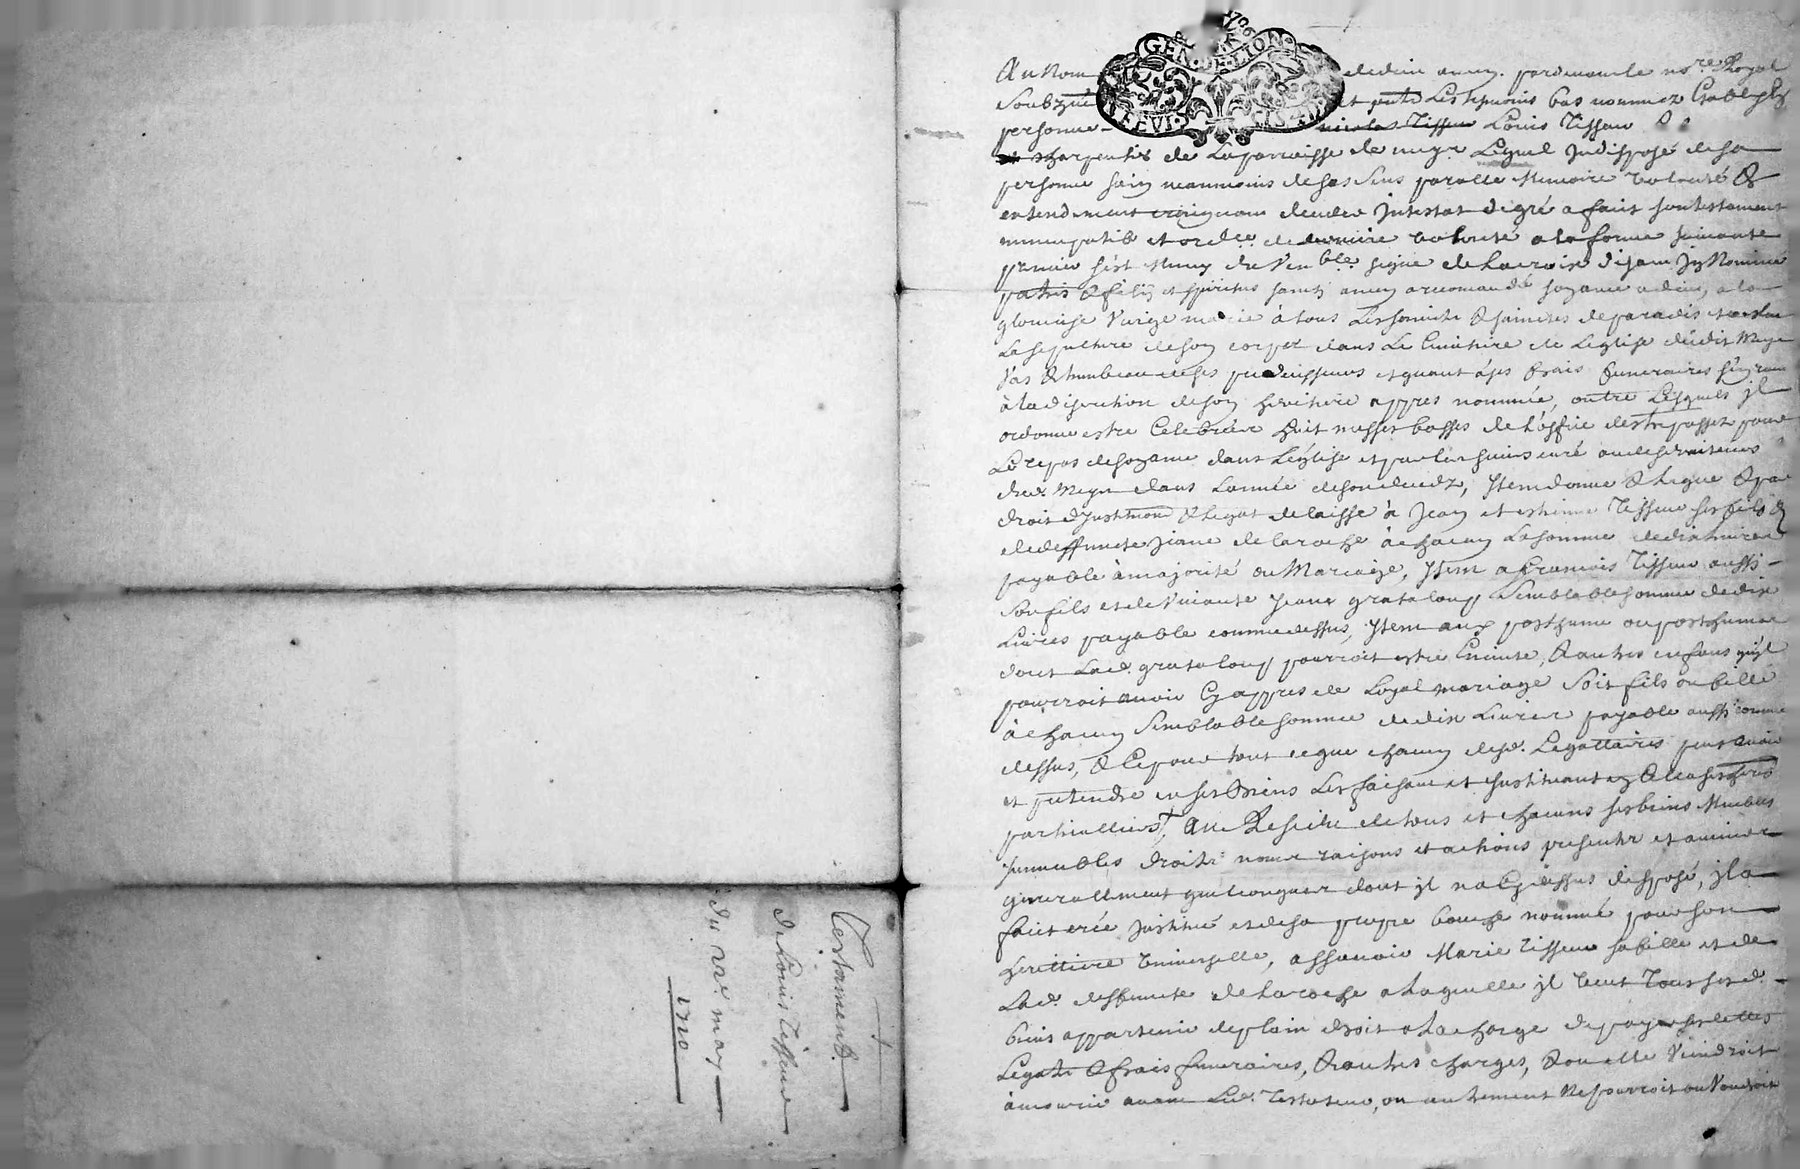 Testament
de Louis Tisseur
du xxe may
1720
GEN DE LION
Au Nom de dieu amen. pardevant le nore Royal
Soubzné et pnts Les tesmoins bas nommez Estably
personne nicolas Tisseur Louis Tisseur
charpentier de La parroisse de meys Lequel Indisposé de sa
personne sain neanmoins de ses sens parolle Memoire volonté &
entendement craignant deceder Intestat de gré a fait son testament
nuncupatif et ordce de derniere volonté a la forme suivante
premier s'est Muny du Venble signe de La croix disant In Nomine
patris & filij et spiritus sancti amen a recomandé son ame a dieu, a la
glorieuse Vierge marie a tous Les saints & saintes de paradis
La sepulture de son corps dans Le Cimetiere de Leglise dudit Meys
& tumbeau de ses predecesseurs et quant à ses frais funeraires
à la discretion de son heritiere appres nommée, outre Lesquels jl
ordonne estre Celebrées huit messes basses de L'office des trepassez pour
Le repos de son ame dans L'église et par les sieurs curé ou desserviteurs
dud. Meys dans L'année de son decedz, Item donne & Legue & par
droit d'Institution & Legat delaisse à Jean et estienne Tisseur ses fils &
de deffuncte Jeane de Laroche à chacun La somme de dix Livres
payable à majorité ou Mariage, Item a francois Tisseur aussi
son fils et de Vivante Jeane grataloup Semblable somme de dix
Livres payable comme dessus, Item aux posthume ou posthumes
dont Lad. grataloup pourroit estre Enceinte, & autres enfans qu'jl
pourroit avoir Cy appres de Loyal mariage Soit fils ou fille
à chacun Semblable somme de dix Livres payable aussi comme
dessus, & Ce pour tout ce que chacun desd. Legattaires peut avoir
et pretendre en ses Biens Les faisant et Instituant en ses hers
particulliers, Au Residu de tous et chacuns ses biens Meubles
Immeubles droits noms raisons et actions presents et avenir
generallement quelconques dont jl na Cy dessus disposé, jl a
fait crée Institué et de sa propre bouche nommé pour son
heritiere Universelle, assavoir Marie Tisseur sa fille et de
Lad. deffuncte de Laroche a Laquelle jl veut Tous sesd.
biens appartenir de plain droit a La charge de payer sesdettes
Legats & frais funeraires, & autres charges, & ou elle Viendroit
à mourir avant Led. Testateur, ou autrement Ne pourroit ou Voudroit